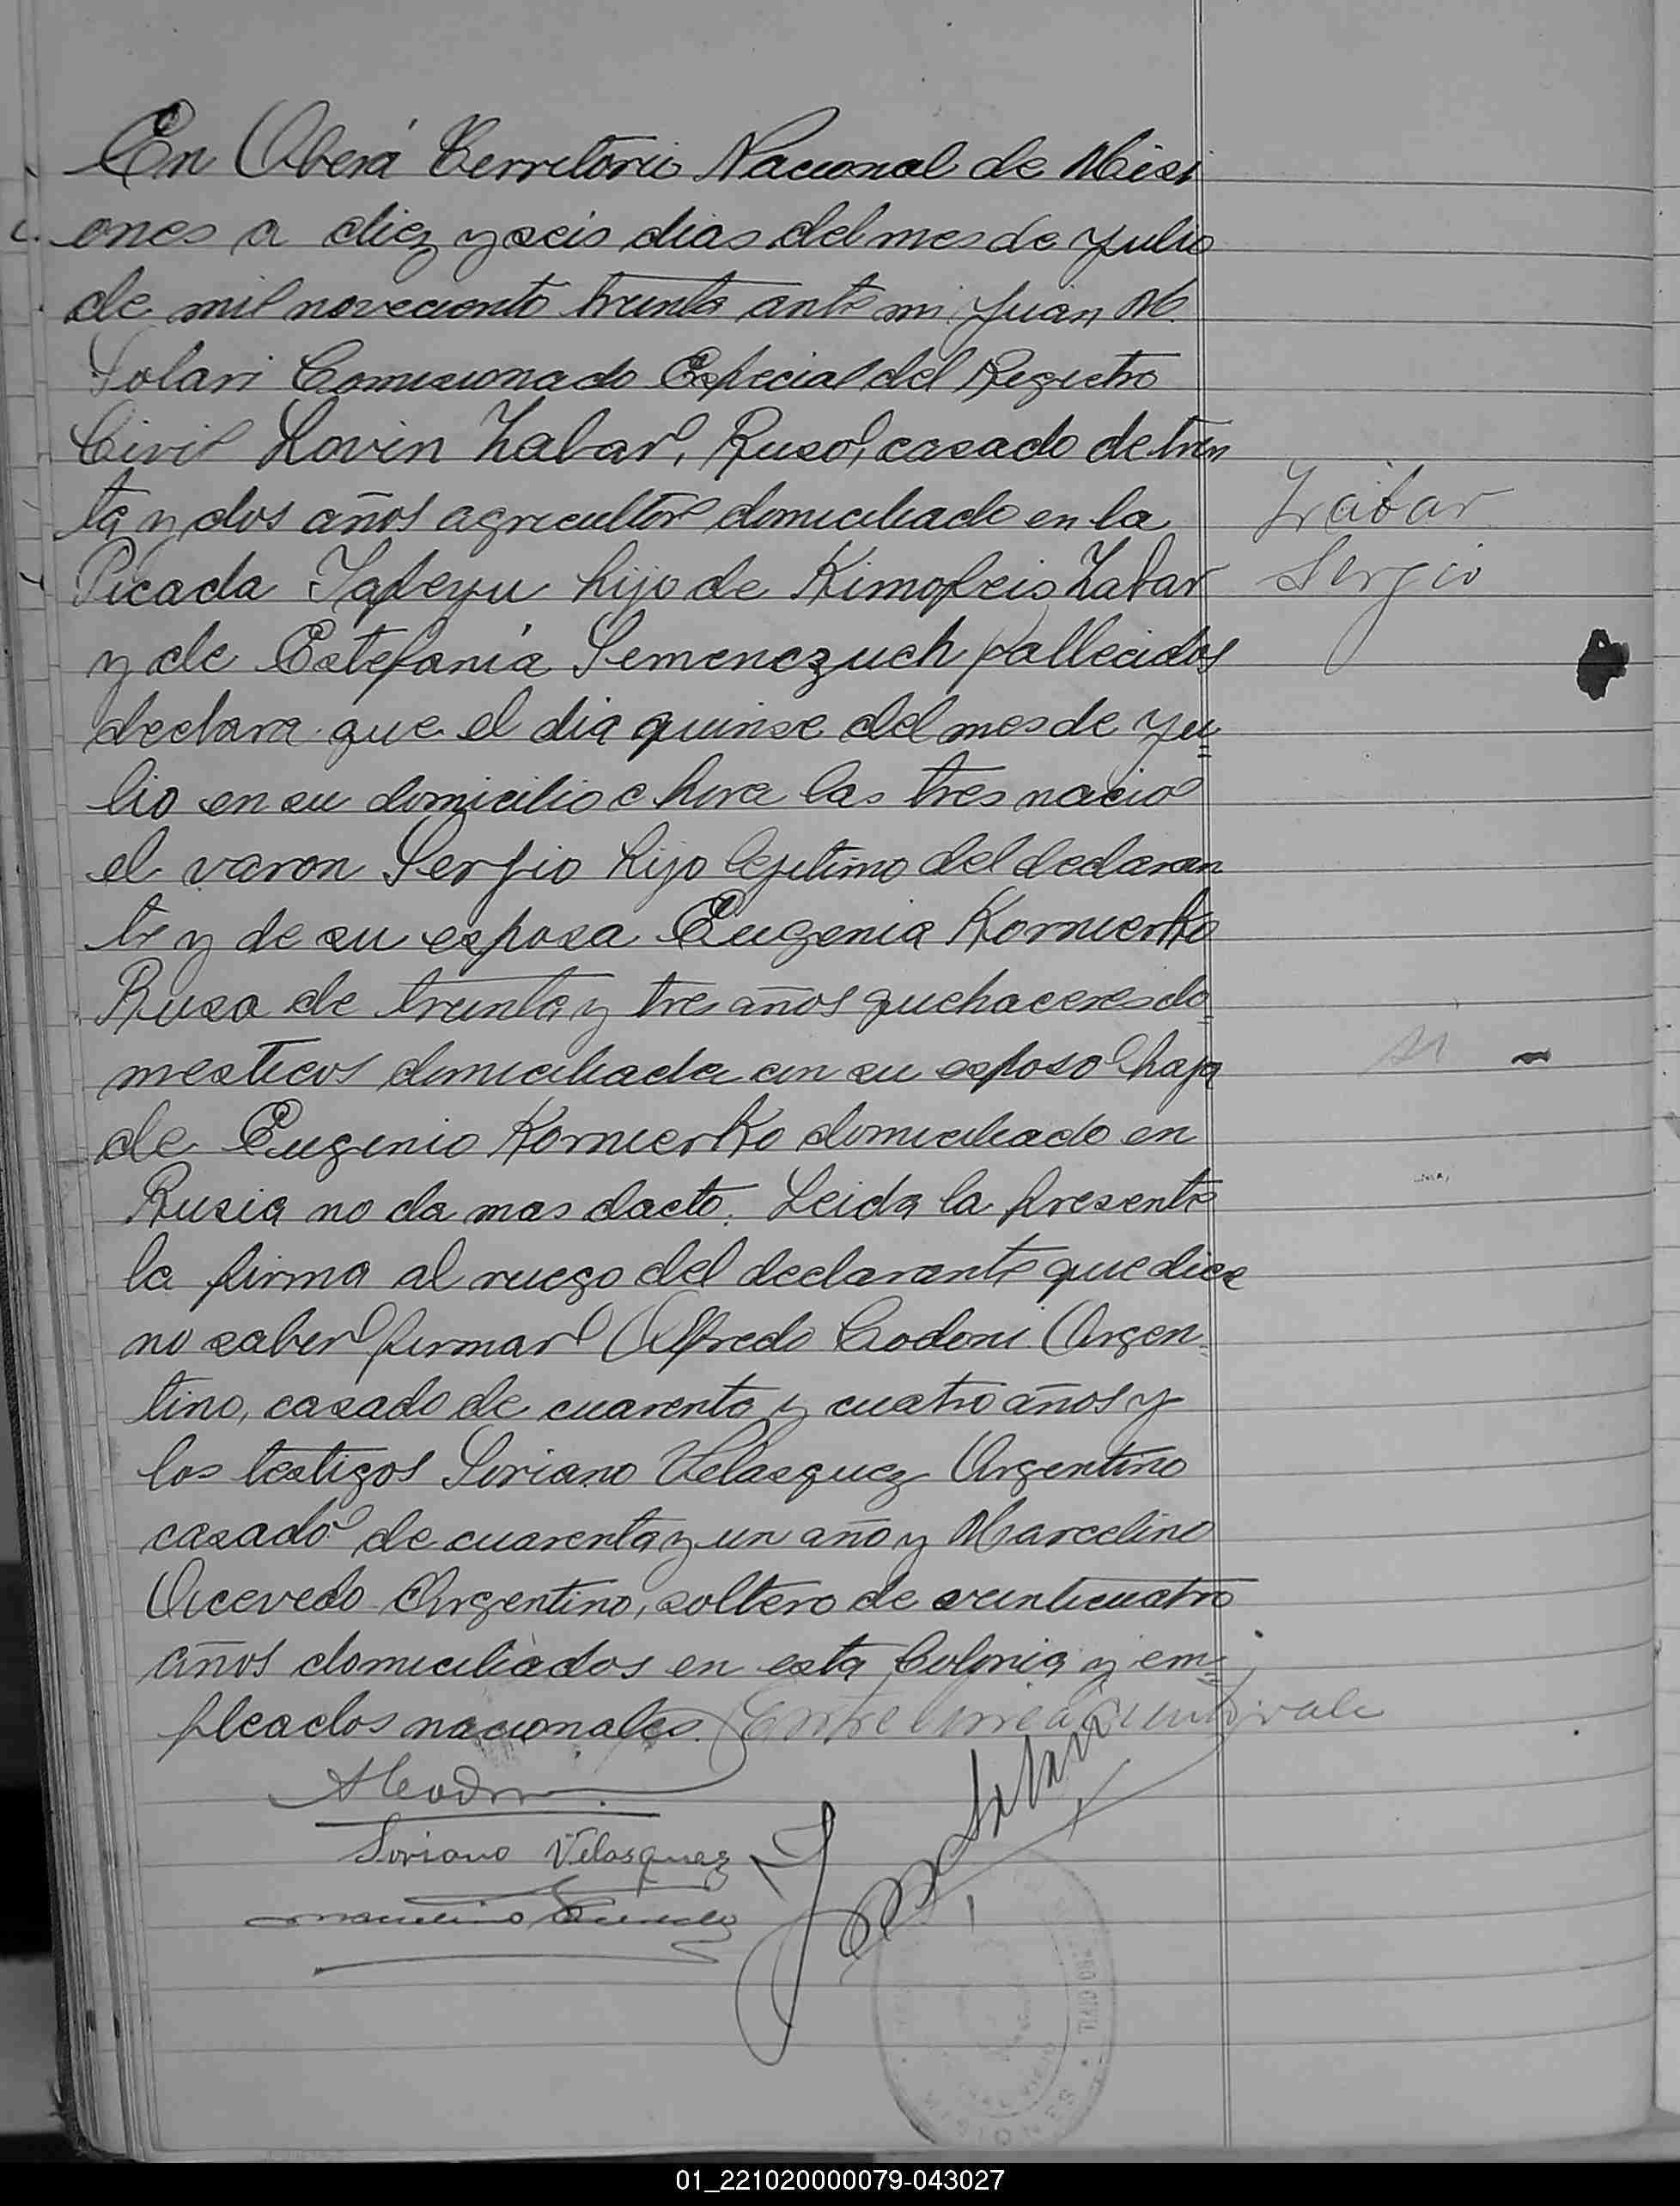 En Oberá Territorio Nacional de Misi
ones a diez y seis dias del mes de Julio
de mil noveciento treinta ante mi Juan M.
Solari Comisionado Especial del Registro
Civil Lovin Zabar, Ruso, casado de trein
ta y dos años agricultor domiciliado en la
Picada Yapeyu hijo de Kimofeis Zabar
y de Estefanía Semenczuch fallecidos
declara que el dia quinse del mes de Ju=
lio en su domicilio e hora las tres nacio
el varon Serfio hijo lejitimo del declaran
te y de su esposa Eugenia Kornierko
Rusa de treinta y tres años quehaceres do=
mesticos domiciliada con su esposo haja
de Eugenio Kornierko domiciliado en
Rusia no da mas dacto. Leida la presente
la firma al ruego del declarante que dice
no saber firmar Alfredo Codoni Argen=
tino, casado de cuarenta y cuatro años y
los testigos Soriano Velasquez Argentino
casado de cuarenta y un año y Marcelino
Acevedo Argentino, soltero de veinticuatro
años domiciliados en esta Colonia y em=
pleados nacionales. Entre linea vale
Soriano Velasquez
Marcelino Acevedo
Solari
Sergio
si
MISIONES
01_221020000079-043027